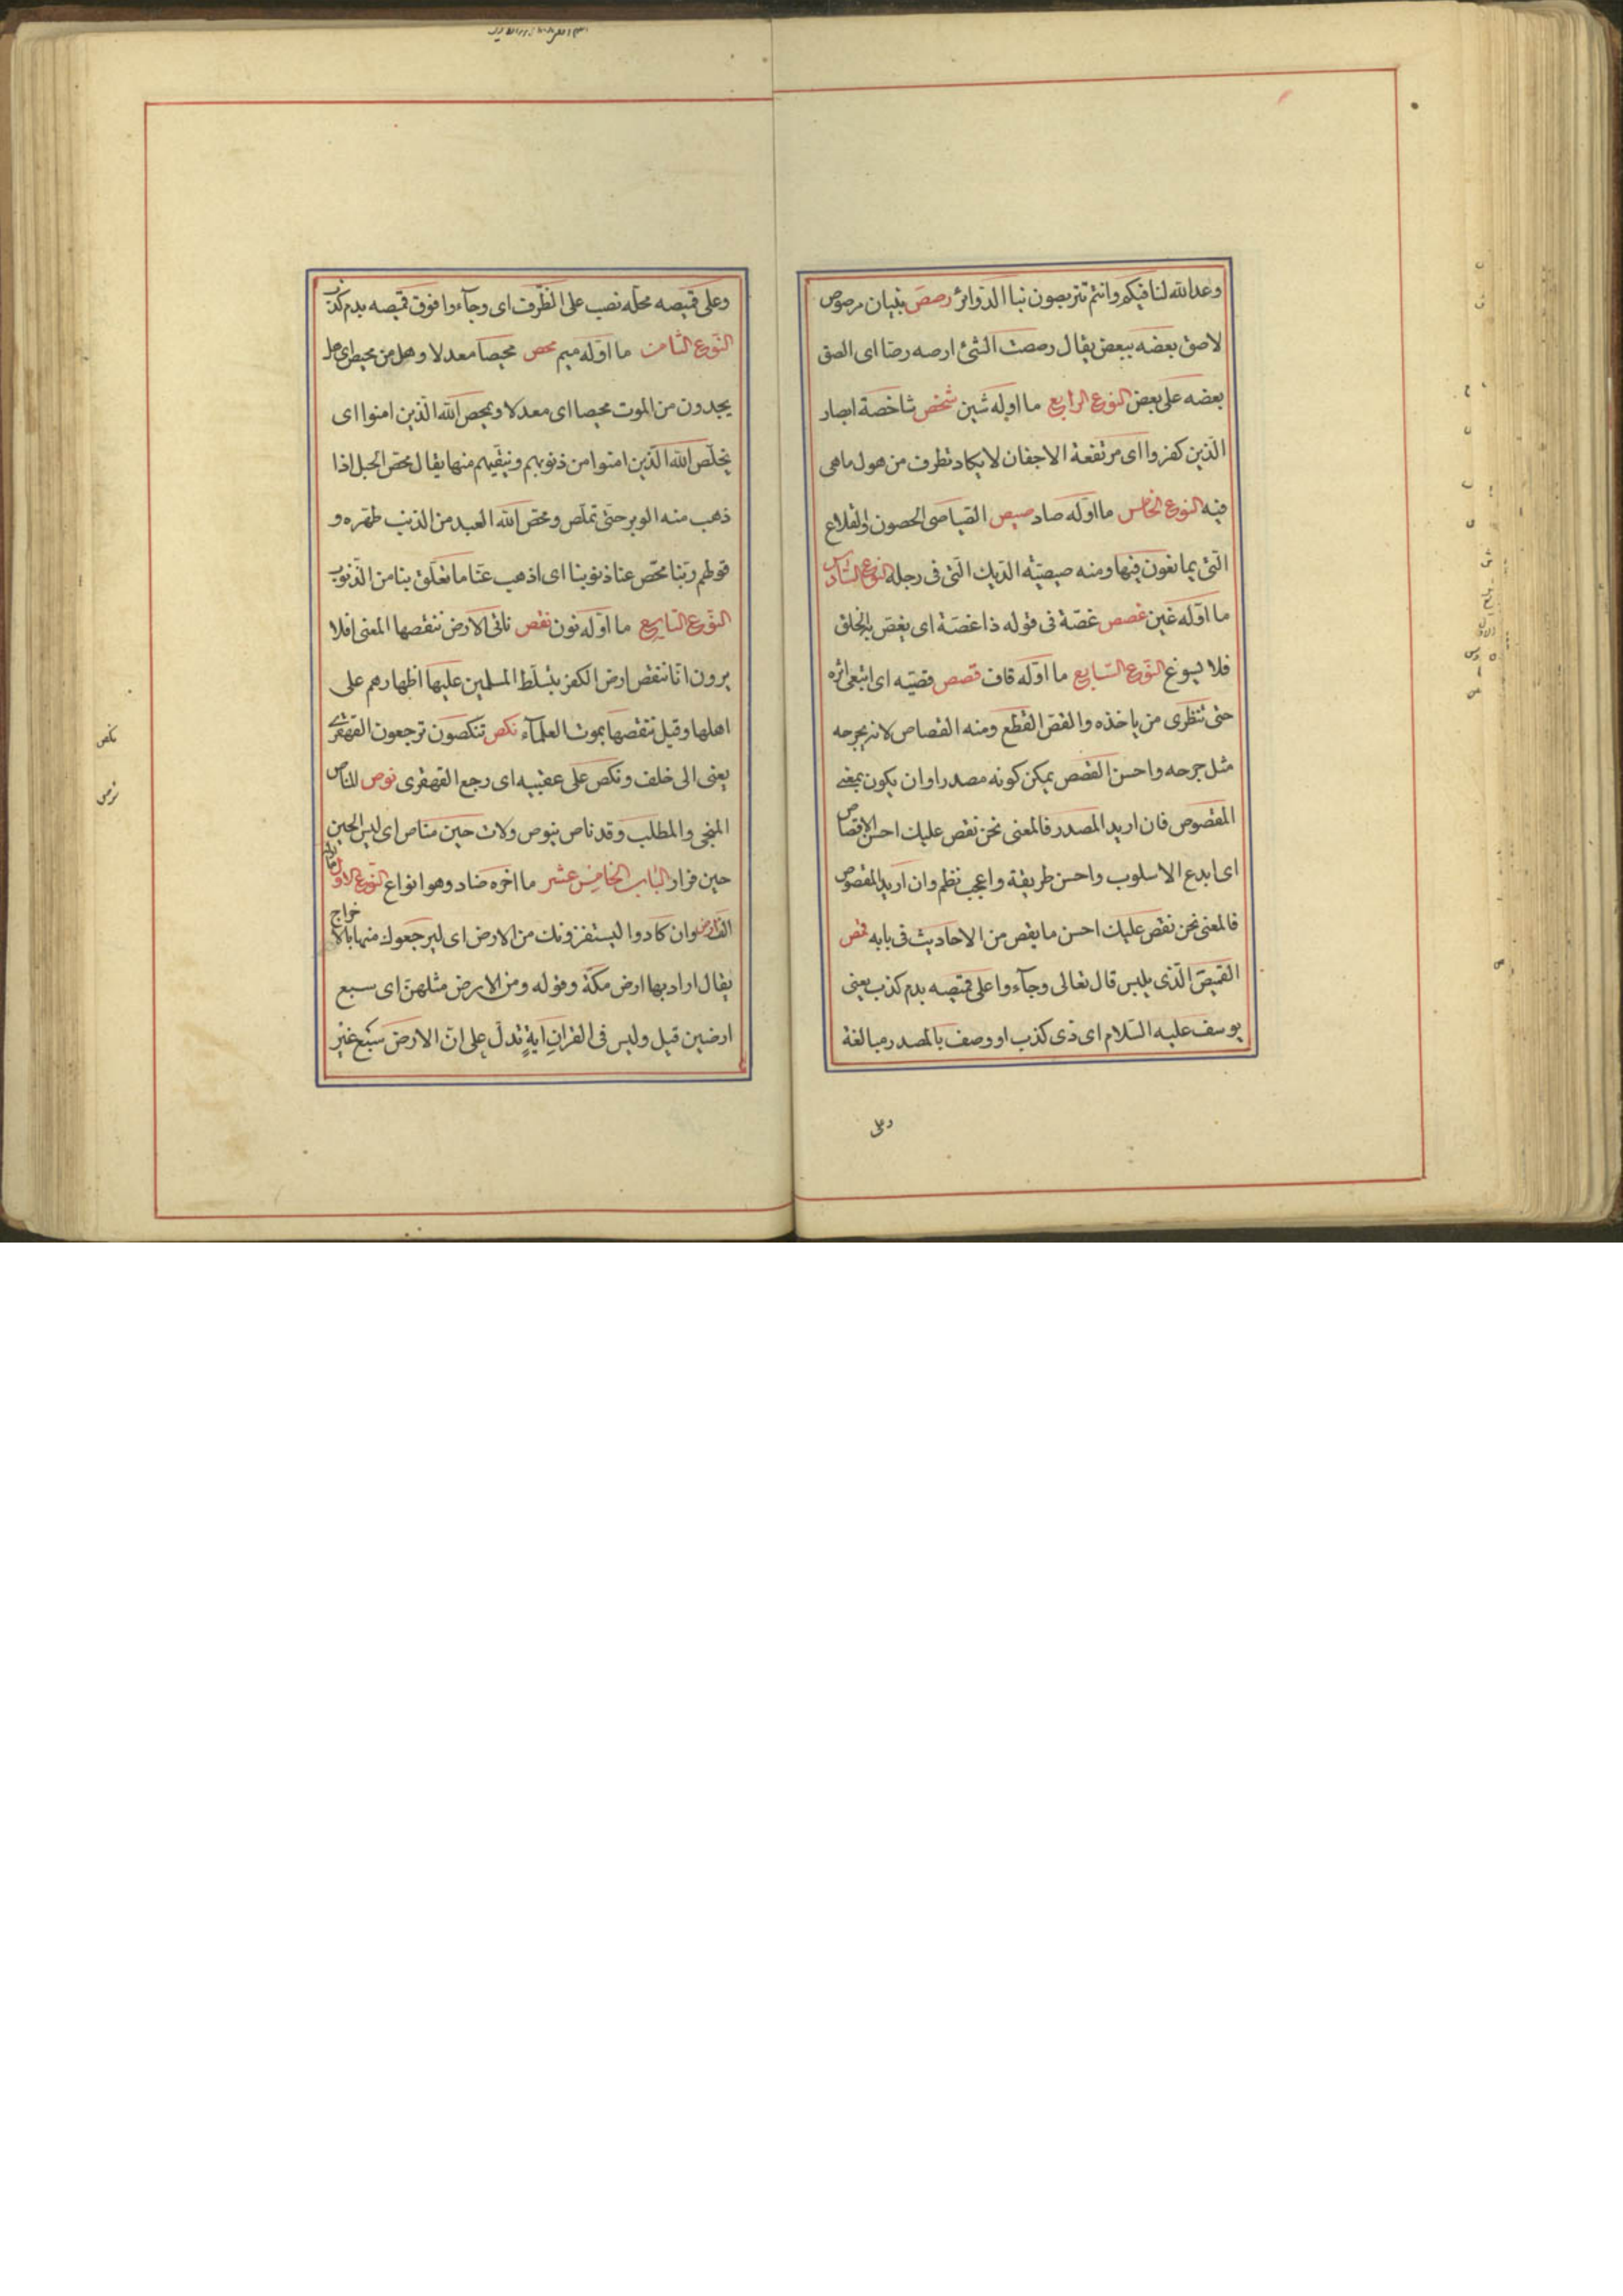 وعد الله لنا فيكم وانتم تتربصون بنا الدوائر رصص بنيان مرصوص
لاصق بعضه ببعض يقال رصصت الشئ ارصه رصا اى الصق
بعضه على بعض النوع الرابع ما اوله شين شخص شاخصة ابصار
الذين كفروا اى مرتفعة الاجفان لا يكاد تطرف من هول ماهى
فيه النوع الخامس ما اوله صاد صيص الصياصى الحصون والقلاع
التى يمانعون فيها ومنه صيصية الديك التى فى رجله النوع السادس
ما اوله غين غصص غصة فى قوله ذا غصة اى يغص به الحلق
فلا يسوغ النوع السابع ما اوله قاف قصص قصيه اى اتبعى اثره
حتى تنظرى من ياخذه والقص القطع ومنه القصاص لانه يجرحه
مثل جرحه واحسن القصص يمكن كونه مصدرا وان يكون بمعنى
المقصوص فان اريد المصدر فالمعنى نحن نقص عليك احسن الاقتصاص
اى ابدع الاسلوب واحسن طريقة واعجب نظم وان اريد المقصوص
فالمعنى نحن نقص عليك احسن ما يقص من الاحاديث فى بابه قمص
القميص الذى يلبس قال تعالى وجآءوا على قميصه بدم كذب يعنى
يوسف عليه السلام اى ذى كذب او وصف بالمصدر مبالغة
وعلى
وعلى قميصه محله نصب على الظرف اى وجآءوا فوق قميصه بدم كذب
النوع الثامن ما اوله ميم محص محيصا معدلا وهل من محيص اى هل
يجدون من الموت محيصا اى معدلا ويمحص الله الذين امنوا اى
يخلص الله الذين امنوا من ذنوبهم وينقيهم منها يقال محص الحبل اذا
ذهب منه الوبر حتى تملص ومحص الله العبد من الذنب طهره و
قولهم ربنا محص عنا ذنوبنا اى اذهب عنا ما تعلق بنا من الذنوب
النوع التاسع ما اوله نون نقص ناتى الارض ننقصها المعنى افلا
يرون انا ننقص ارض الكفر بتسلط المسلمين عليها اظهارهم على
اهلها وقيل ننقصها بموت العلمآء نكص تنكصون ترجعون القهقرى
يعنى الى خلف ونكص على عقبيه اى رجع القهقرى نوص المناص
المنجى والمطلب وقد ناص ينوص ولات حين مناص اى ليس الحين
حين فرار الباب الخامس عشر ما اخره ضاد وهو انواع النوع الاول ما اوله
الف ارض وان كادوا ليستفزونك من الارض اى ليزجعوك منها بالاخراج
يقال اراد بها ارض مكة وقوله ومن الارض مثلهن اى سبع
ارضين قيل وليس فى القران اية تدل على ان الارض سبع غير
نكص
نوص